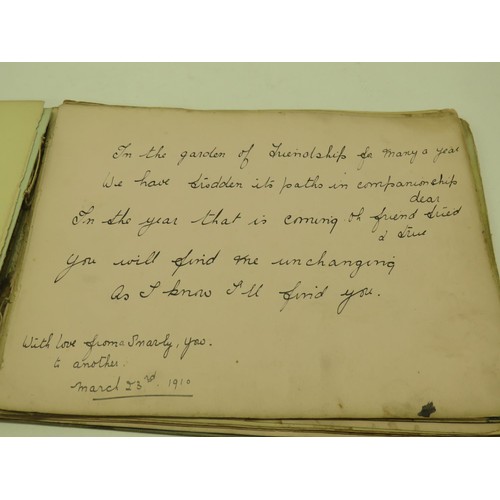 In the garden of Friendship for many a year
We have trodden its paths in companionship
dear
In the year that is coming oh friend tried
& true
You will find me unchanging
As I know I'll find you.
With love from a Snarly, Yow.
to another.
March 23rd. 1910